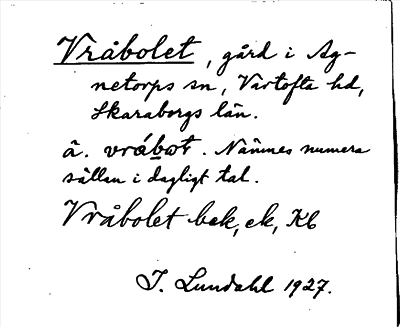 Vråbolet, gård i Ag-
netorps sn, Vartofta hd,
Skaraborgs län.
å. vråbωt. Nämnes numera
sällan i dagligt tal.
Vråbolet bek, ek, Kb
I. Lundahl 1927.